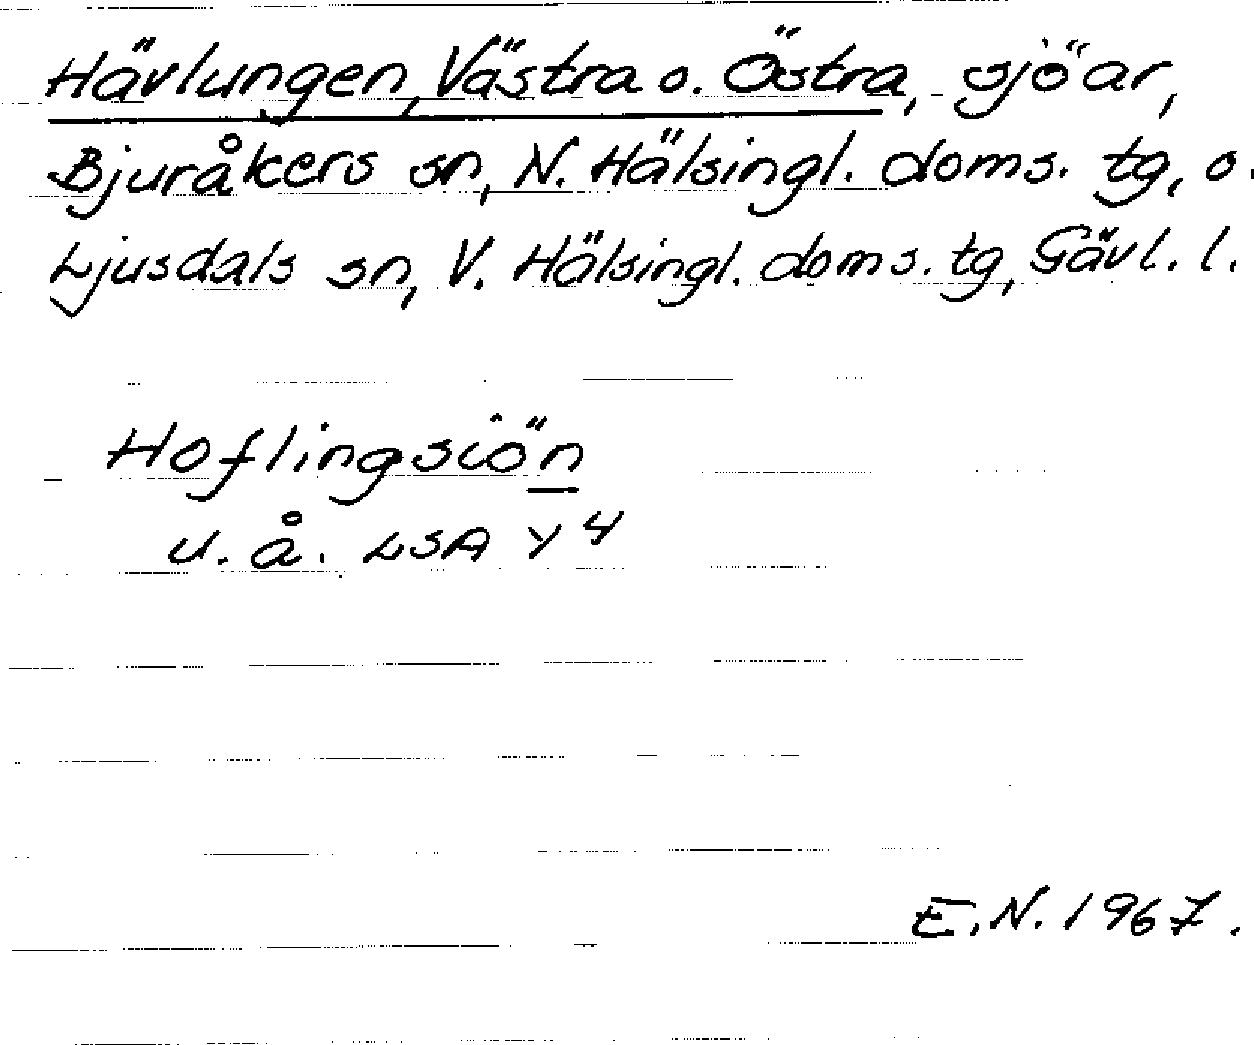 Hävlungen, Västra o. Östra, sjöar,
Bjuråkers sn, N. Hälsingl. doms. tg, o.
Ljusdals sn, V. Hälsingl. doms. tg, Gävl. l.
Hoflingsiön
u. å. LSA Y 4
E. N. 1967.